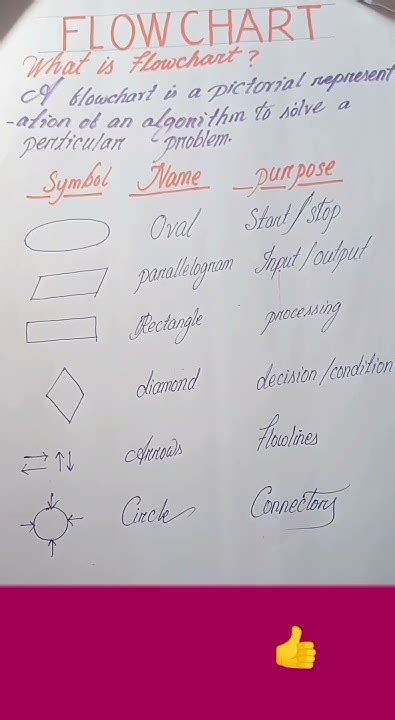 FLOWCHART
What is flowchart?
A flowchart is a pictorial represent
-ation of an algorithm to solve a
perticular problem.
Symbol Name purpose
Oval Start/stop
parallelogram Input/output
Rectangle processing
diamond decision/condition
Arrows Flowlines
Circle Connectors